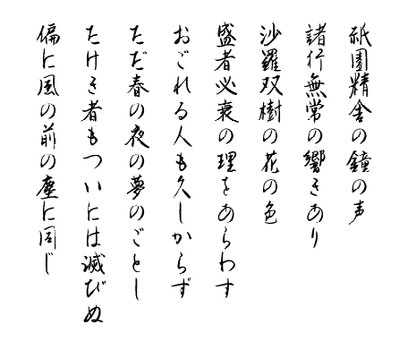 祇園精舎の鐘の声
諸行無常の響きあり
沙羅双樹の花の色
盛者必衰の理をあらわす
おごれる人も久しからず
ただ春の夜の夢のごとし
たけき者もついには滅びぬ
偏に風の前の塵に同じ